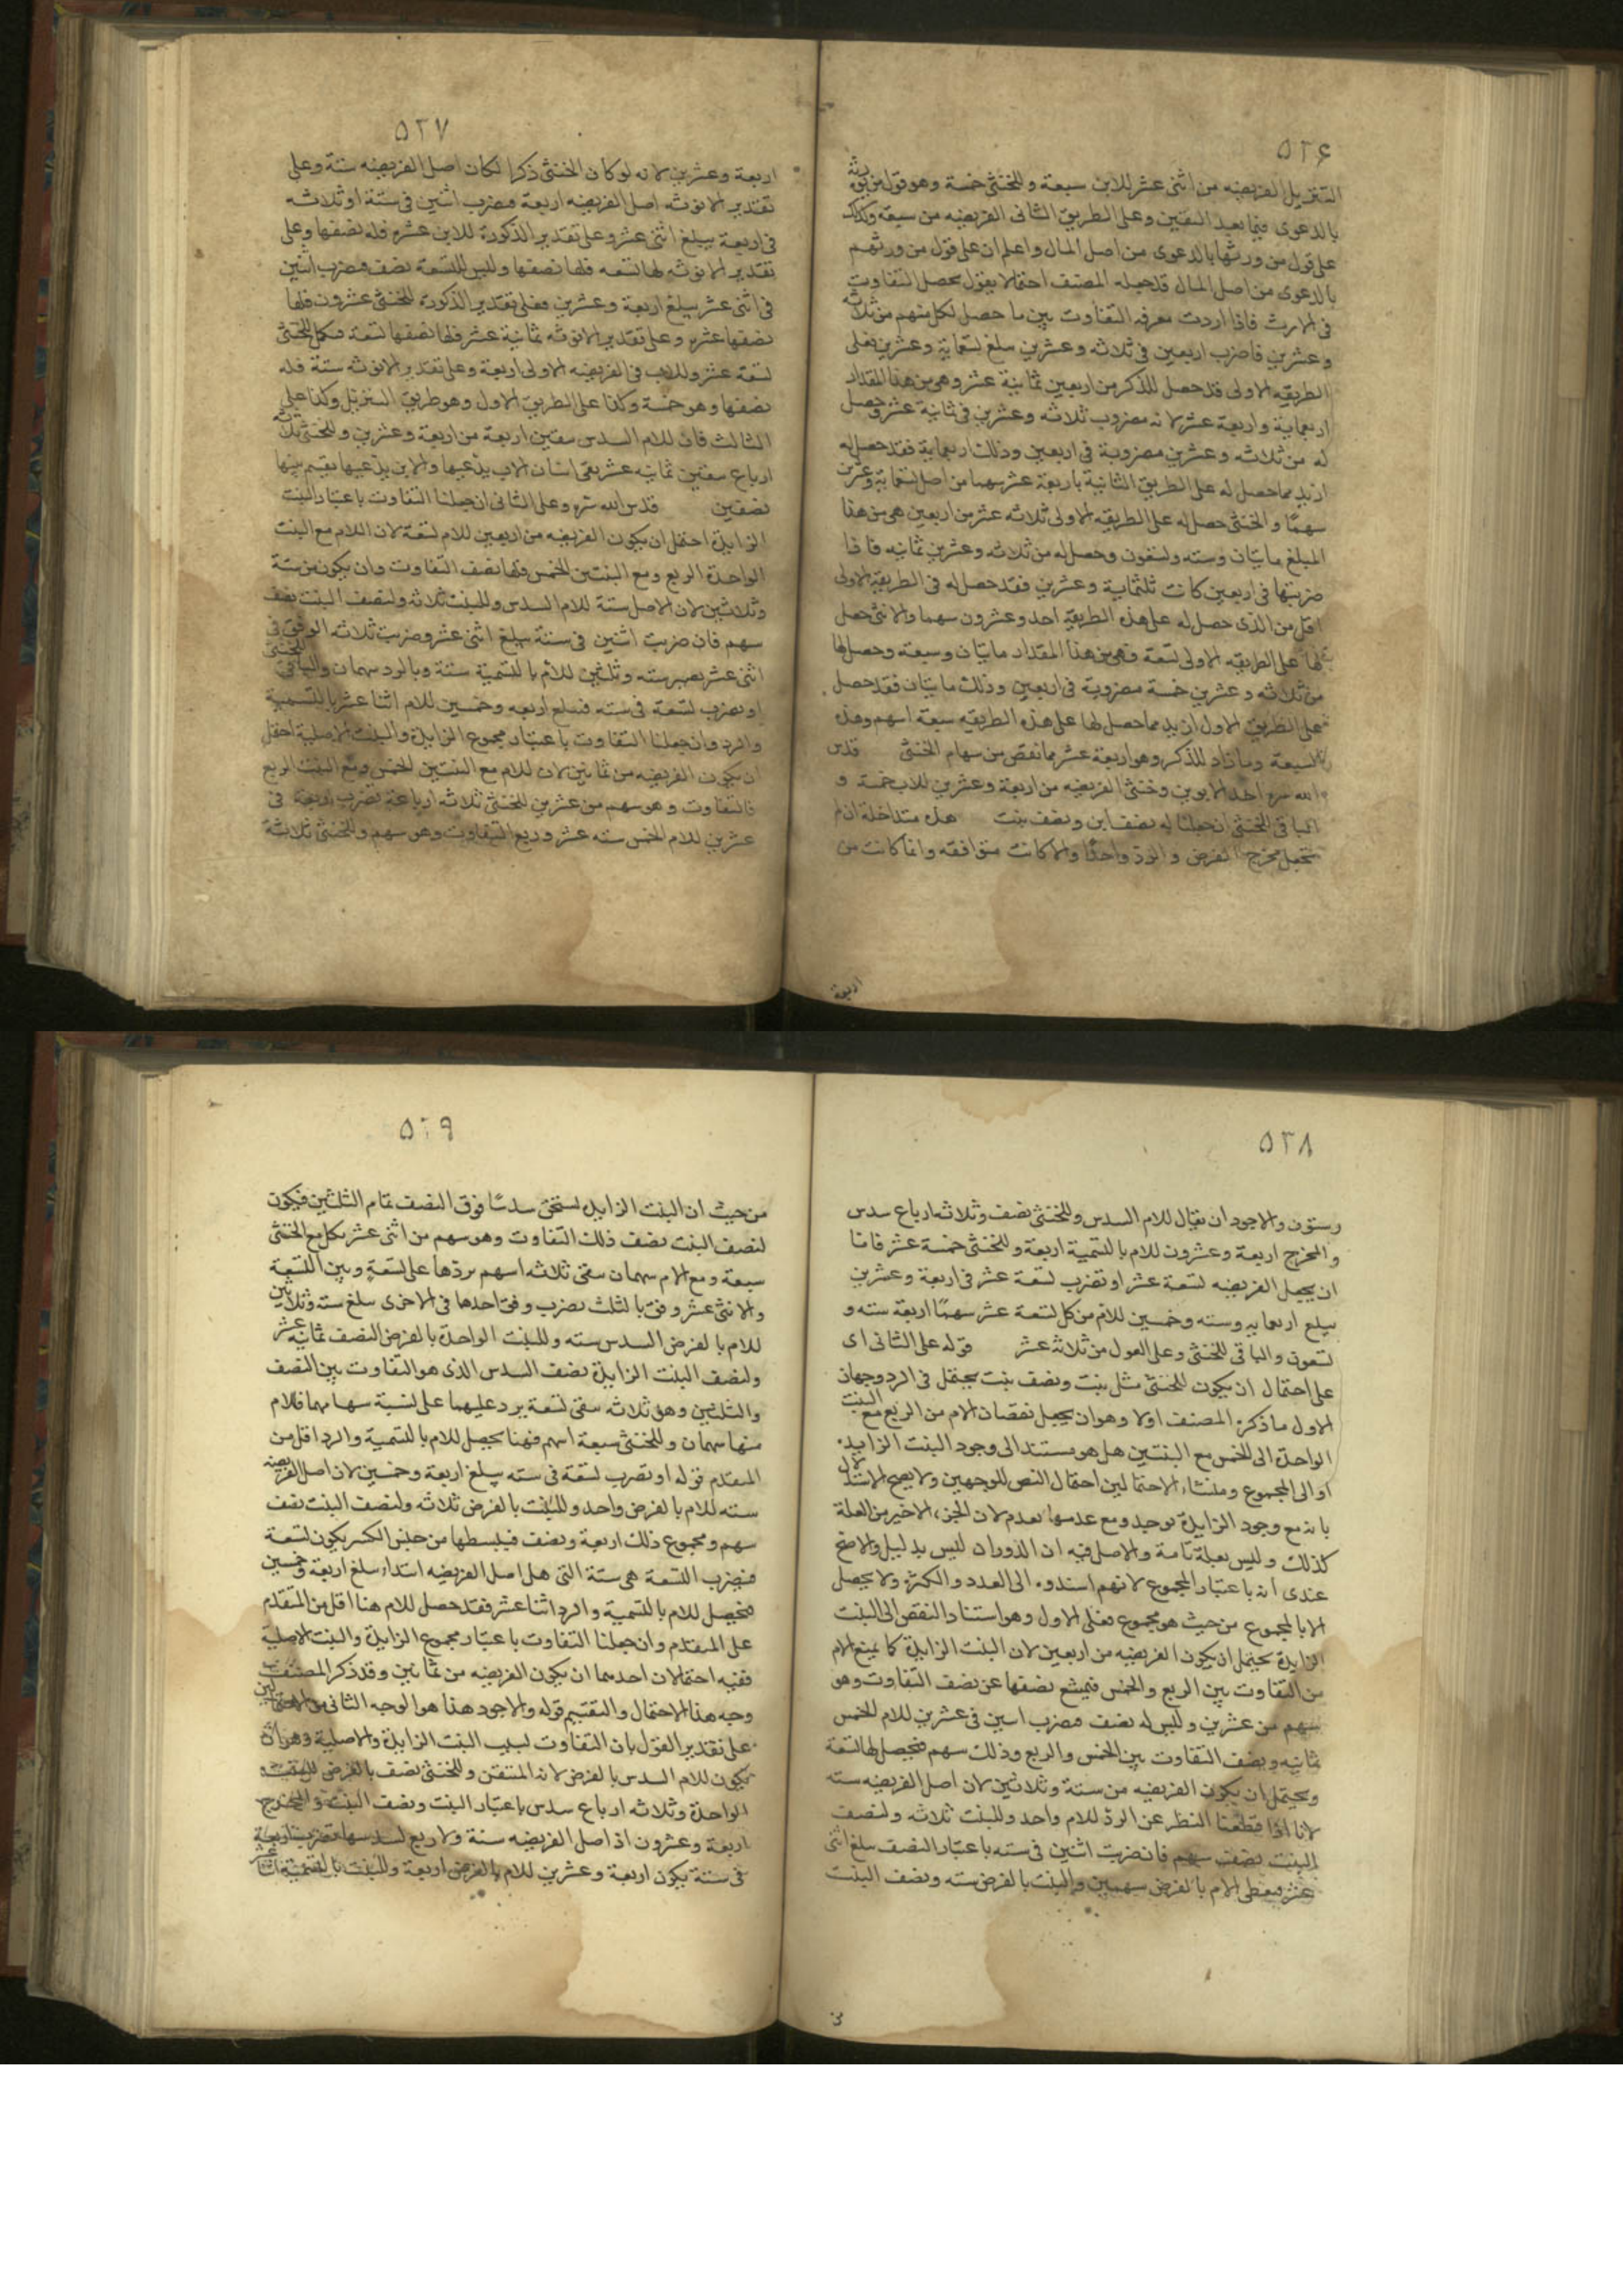 ٥٢۶
التنزيل الفريضه من اثنى عشر للابن سبعة وللخنثى خمسة وهو قول من يورثه
بالدعوى فيما بعد اليقين وعلى الطريق الثانى الفريضه من سبعة وكذلك
على قول من ورثها بالدعوى من اصل المال واعلم ان على قول من ورثهم
بالدعوى من اصل المال قد جعله المصنف احتمالا يقول يحصل التفاوت
فى الارث فاذا اردت معرفه التفاوت بين ما حصل لكل منهم من ثلاثه
وعشرين فاضرب اربعين فى ثلاثه وعشرين يبلغ تسعماية وعشرين فعلى
الطريقه الاولى قد حصل للذكر من اربعين ثمانية عشر وهى من هذا المقدار
اربعماية واربعة عشر لانه مضروب ثلاثه وعشرين فى ثمانية عشر وحصل
له من ثلاثه وعشرين مضروبة فى اربعين وذلك اربعماية فقد حصل له
ازيد مما حصل له على الطريق الثانية باربعة عشر سهما من اصل تسعماية وعشرين
سهمًا والخنثى حصل له على الطريقه الاولى ثلاثه عشر من اربعين هى من هذا
المبلغ مايتان وسته وتسعون وحصل له من ثلاثه وعشرين ثمانيه فاذا
ضربتها فى اربعين كانت ثلثماية وعشرين فقد حصل له فى الطريقه الاولى
اقل من الذى حصل له على هذه الطريقه احد وعشرون سهما والانثى حصل
لها على الطريقه الاولى تسعة وهى من هذا المقدار مايتان وسبعة وحصل لها
من ثلاثه وعشرين خمسة مضروبة فى اربعين وذلك مايتان فقد حصل
على الطريق الاول ازيد مما حصل لها على هذه الطريقه سبعة اسهم وهذه
السبعة وما زاد للذكر وهو اربعة عشر مما نقص من سهام الخنثى قدس
الله سره احد الابوين وخنثى الفريضه من اربعة وعشرين للاب خمسة و
الباقى للخنثى ان جعلنا له نصف ابن ونصف بنت هذه متداخلة ان لم
تجعل مخرج الفرض والرد واحدًا والا كانت متوافقه وانما كانت من
اربعة
٥٢٧
اربعة وعشرين لانه لو كان الخنثى ذكرا لكان اصل الفريضه ستة وعلى
تقدير الانوثه اصل الفريضه اربعة فيضرب اثنين فى ستة او ثلاثه
فى اربعة يبلغ اثنى عشر وعلى تقدير الذكورة للابن عشرة فله نصفها وعلى
تقدير الانوثه لها تسعه فلها نصفها وليس للتسعة نصف فيضرب اثنين
فى اثنى عشر يبلغ اربعة وعشرين فعلى تقدير الذكورة للخنثى عشرون فلها
نصفها عشرة وعلى تقدير الانوثه ثمانية عشر فلها نصفها تسعة فكمل للخنثى
تسعة عشر وللاب فى الفريضه الاولى اربعة وعلى تقدير الانوثه ستة فله
نصفها وهو خمسة وكذا على الطريق الاول وهو طريق التنزيل وكذا على
الثالث فان للام السدس بيقين اربعة من اربعة وعشرين وللخنثى ثلاثه
ارباع بيقين ثمانيه عشر بقى اثنان الاب يدعيها والابن يدعيها يقسم بينها
نصفين قدس الله سره وعلى الثانى ان جعلنا التفاوت باعتبار البنت
الزايدة احتمل ان يكون الفريضه من اربعين للام تسعة لان اللام مع البنت
الواحدة الربع ومع البنتين الخمس فلها نصف التفاوت وان يكون من ستة
وثلاثين لان الاصل ستة للام السدس وللبنت ثلاثه ولنصف البنت نصف
سهم فان ضربت اثنين فى ستة يبلغ اثنى عشر وضربت ثلاثه الوفق فى
اثنى عشر يصير سته وثلثين للأم بالتسمية ستة وبالرد سهمان والباقى للخنثى
او يضرب تسعة فى سته فيبلغ اربعه وخمسين للام اثنا عشر بالتسمية
والرد وان جعلنا التفاوت باعتبار مجموع الزايدة والبنت الاصلية احتمل
ان يكون الفريضه من ثمانين لان للام مع البنتين الخمس ومع البنت الربع
فالتفاوت وهو سهم من عشرين للخنثى ثلاثه ارباعة يضرب اربعة فى
عشرين للام الخمس سته عشر وربع التفاوت وهو سهم وللخنثى ثلاثة
٥٢٨
وستون والاجود ان يقال للام السدس وللخنثى نصف وثلاثه ارباع سدس
والمخرج اربعة وعشرون للام بالتسمية اربعة وللخنثى خمسة عشر فاما
ان يجعل الفريضه تسعة عشر او تضرب تسعة عشر فى اربعة وعشرين
يبلغ اربعمايه وسته وخمسين للام من كل تسعة عشر سهمًا اربعة سته و
تسعون والباقى للخنثى وعلى العول من ثلاثه عشر قوله على الثانى اى
على احتمال ان يكون للخنثى مثل بنت ونصف بنت يحتمل فى الرد وجهان
الاول ما ذكره المصنف اولا وهو ان يجعل نقصان الام من الربع مع البنت
الواحدة الى الخمس مع البنتين هل هو مستند الى وجود البنت الزايدة
او الى المجموع ومنشاء الاحتمالين احتمال النص للوجهين ولا يصح الاستدلال
بانه مع وجود الزايدة توجد ومع عدمها يعدم لان الجزء الاخير من العلة
كذلك وليس بعلة تامة والاصل فيه ان الدوران ليس بدليل والاصح
عندى انه باعتبار المجموع لانهم اسندوه الى العدد والكثرة ولا يحصل
الا بالمجموع من حيث هو مجموع فعلى الاول وهو استناد النقص الى البنت
الزايدة يحتمل ان يكون الفريضه من اربعين لان البنت الزايدة كما يمنع الام
من التفاوت بين الربع والخمس فيمنع نصفها عن نصف التفاوت وهو
سهم من عشرين وليس له نصف فيضرب اثنين فى عشرين للام الخمس
ثمانيه ونصف التفاوت بين الخمس والربع وذلك سهم فيحصل لها تسعة
ويحتمل ان يكون الفريضه من ستة وثلاثين لان اصل الفريضه سته
لانا اذا قطعنا النظر عن الرد للام واحد وللبنت ثلاثه ولنصف
البنت نصف سهم فان ضربت اثنين فى سته باعتبار النصف يبلغ اثنى
عشر فيعطى الام بالفرض سهمين والبنت بالفرض سته ونصف البنت
٥٢٩
من حيث ان البنت الزايدة تستحق سدسًا فوق النصف تمام الثلثين فيكون
لنصف البنت نصف ذلك التفاوت وهو سهم من اثنى عشر يكمل مع الخنثى
سبعة ومع الام سهمان يبقى ثلاثه اسهم يردها على تسعةٍ وبين التسعة
والاثنى عشر وفق بالثلث يضرب وفق احدها فى الاخرى يبلغ سته وثلاثين
للام بالفرض السدس سته وللبنت الواحدة بالفرض النصف ثمانيه عشر
ولنصف البنت الزايدة نصف السدس الذى هو التفاوت بين النصف
والثلثين وهو ثلاثه يبقى تسعة يرد عليهما على نسبة سهامهما فللام
منها سهمان وللخنثى سبعة اسهم فهنا يحصل للام بالتسمية والرد اقل من
المتقدم قوله او تضرب تسعة فى سته يبلغ اربعة وخمسين لان اصل الفريضه
سته للام بالفرض واحد وللبنت بالفرض ثلاثه ولنصف البنت نصف
سهم ومجموع ذلك اربعة ونصف فيبسطها من جنس الكسر يكون تسعة
فيضرب التسعة هى ستة التى هى اصل الفريضه ابتداء يبلغ اربعة وخمسين
فيحصل للام بالتسمية والرد اثنا عشر فقد حصل للام هنا اقل من المتقدم
على المتقدم وان جعلنا التفاوت باعتبار مجموع الزايدة والبنت الاصلية
ففيه احتمالان احدهما ان يكون الفريضه من ثمانين وقد ذكر المصنف
وجه هذا الاحتمال والتقسيم قوله والاجود هذا هو الوجه الثانى من الاحتمالين
على تقدير القول بان التفاوت لسبب البنت الزايدة والاصلية وهو ان
يكون للام السدس بالفرض لانه المتيقن وللخنثى نصف بالفرض للبنت
الواحدة وثلاثه ارباع سدس باعتبار البنت ونصف البنت والمخرج
اربعة وعشرون اذ اصل الفريضه ستة ولا ربع لسدسها فتضرب اربعة
فى ستة يكون اربعة وعشرين للام بالفرض اربعة وللبنت بالتسمية اثنا عشر